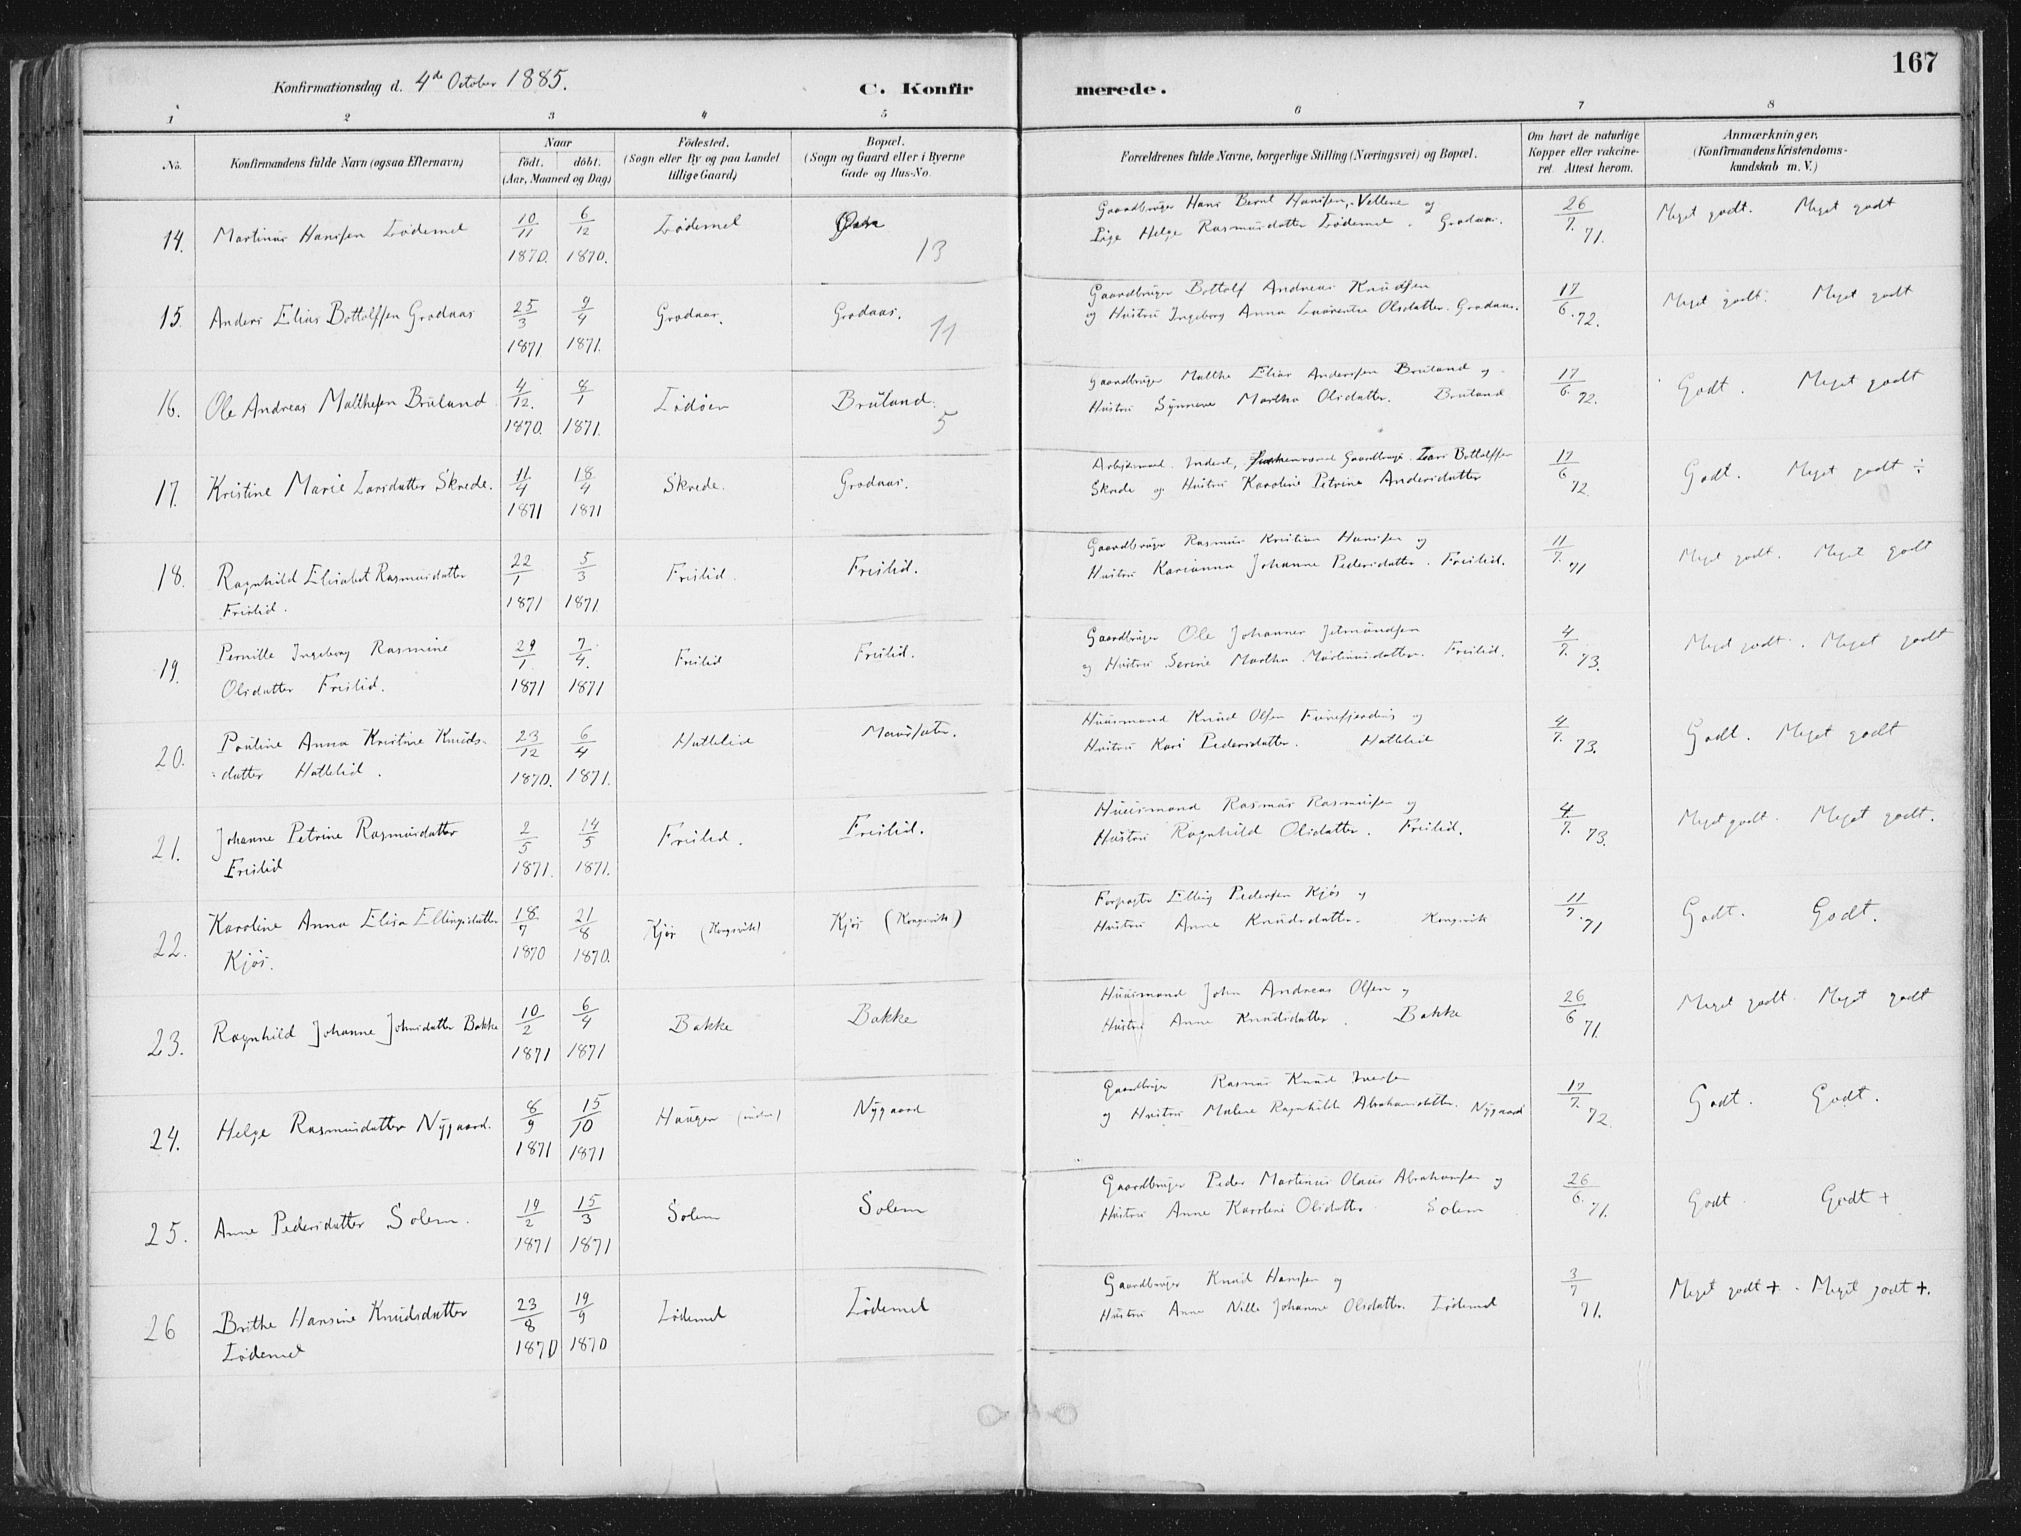 167
Konfirmationsdag d. 4de October 1885.
C. Konfirmerede.
1 2 3 4 5 6 7 8
No.
Konfirmandens fulde Navn (ogsaa Efternavn)
Naar
födt. döbt.
(Aar, Maaned og Dag)
Födested.
(Sogn eller By og paa Landet
tillige Gaard)
Bopæl.
(Sogn og Gaard eller i Byerne
Gade og Hus-No.
Forældrenes fulde Navne, borgerlige Stilling (Næringsvei) og Bopæl.
Om havt de naturlige
Kopper eller vakcine-
ret. Attest herom.
Anmærkninger,
(Konfirmandens Kristendoms-
kundskab m. V.)
14. Martinus Hansen Lödemel 10/11 1870. 6/12 1870. Lödemel 13
Gaardbruger Hans Bernt Hansen, Vellene og
Pige Helge Rasmusdatter Lödemel. Grodaas. 26/7. 71. Meget godt. Meget godt
15. Anders Elias Bottolfsen Grodaas 25/3 1871 9/4 1871. Grodaas. Grodaas. 11
Gaardbruger Bottolf Andreas Knudsen
og Hustru Ingeborg Anna Laurentse Olsdatter. Grodaas. 17/6. 72. Meget godt. Meget godt
16. Ole Andreas Malthesen Bruland 4/12. 1870. 8/1 1871. Lödöen Bruland. 5
Gaardbruger Malthe Elias Andersen Bruland og
Hustru Synneve Martha Olsdatter. Bruland 17/6. 72. Godt. Meget godt
17. Kristine Marie Larsdatter Skrede. 11/4 1871 18/4 1871 Skrede. Grodaas.
Arbeidsmand. Inderst, Gaardbruger Lars Bottolfsen
Skrede og Hustru Karoline Petrine Andersdatter 17/6 72. Godt. Meget godt ÷
18. Ragnhild Elisabet Rasmusdatter
Frislid. 22/1 1871 5/3 1871 Frislid. Frislid.
Gaardbruger Rasmus Kristian Hansen og
Hustru Karianna Johanne Pedersdatter. Frislid. 11/7. 71 Meget godt. Meget godt
19. Pernille Ingeborg Rasmine
Olsdatter Frislid. 29/1. 1871 7/4. 1871 Frislid Frislid.
Gaardbruger Ole Johannes Jetmundsen
og Hustru Serine Martha Martinusdatter. Frislid. 4/7. 73. Meget godt. Meget godt
20. Pauline Anna Kristine Knuds-
datter Hattelid. 23/12 1870. 6/4 1871. Hattelid Maursæter.
Huusmand Knud Olsen Furefjording og
Hustru Kari Pedersdatter. Hattelid 4/7. 73. Godt. Meget godt
21. Johanne Petrine Rasmusdatter
Frislid 2/5 1871. 14/5 1871. Frislid. Frislid.
Huusmand Rasmus Rasmusen og
Hustru Ragnhild Olsdatter. Frislid. 4/7. 73. Meget godt. Meget godt.
22. Karoline Anna Elisa Ellingsdatter
Kjös. 18/7 1870 21/8 1870. Kjös (Kongsvik) Kjös (Kongsvik)
Forpagter Elling Pedersen Kjös og
Hustru Anne Knudsdatter. Kongsvik 11/7. 71 Godt. Godt.
23. Ragnhild Johanne Johnsdatter Bakke 10/2 1871 6/4 1871 Bakke Bakke
Huusmand John Andreas Olsen og
Hustru Anne Knudsdatter. Bakke 26/6 71. Meget godt. Meget godt
24. Helge Rasmusdatter Nygaard. 8/9 1871 15/10 1871 Haugen Nygaard
Gaardbruger Rasmus Knud Iversen
og Hustru Malene Ragnhilde Abrahamsdatter. Nygaard 17/7. 72. Godt. Godt.
25. Anne Pedersdatter Solem. 14/2 1871 15/3 1871 Solem Solem
Gaardbruger Peder Martinus Olaus Abrahamsen og
Hustru Anne Karoline Olsdatter Solem 26/6. 71. Godt Godt +
26 Brithe Hansine Knudsdatter
Lödemel 23/8 1870 19/9 1870 Lödemel Lödemel
Gaardbruger Knud Hansen og
Hustru Anne Nille Johanne Olsdatter. Lödemel 3/7 71. Meget godt +. Meget godt +.